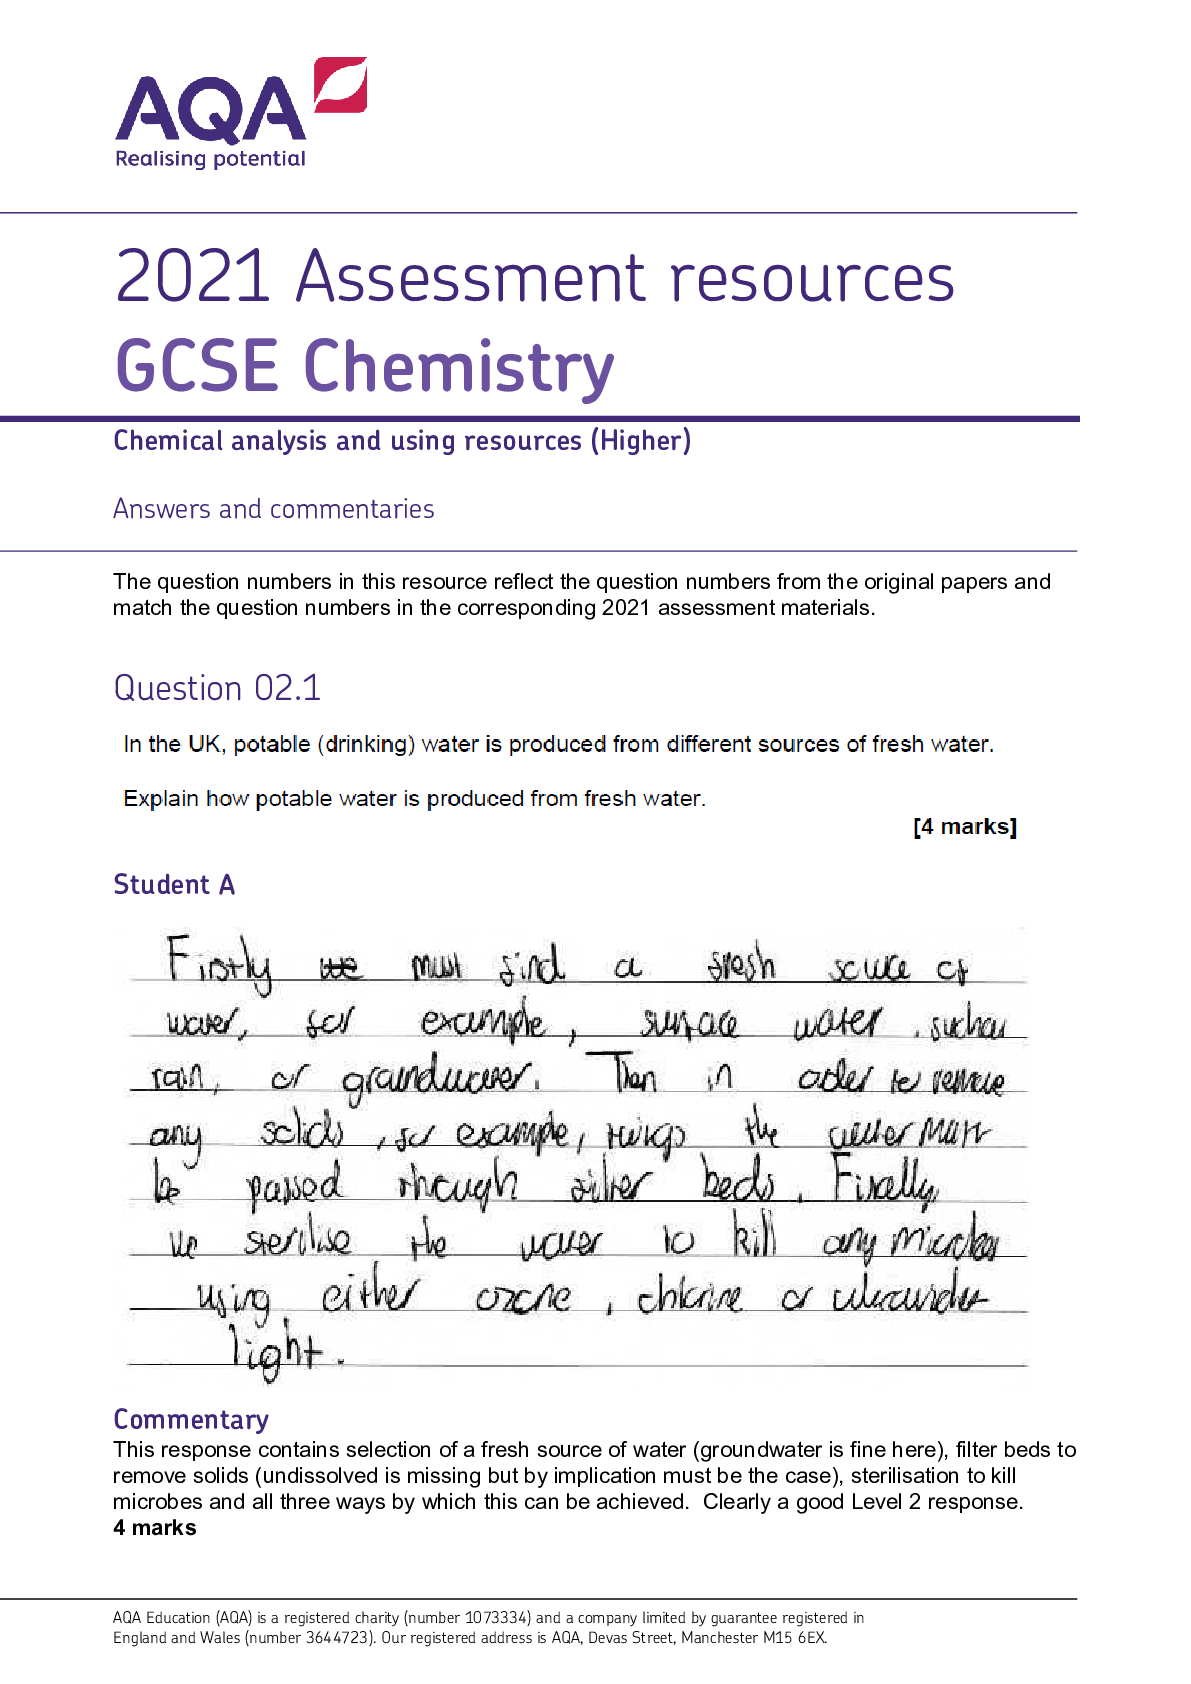 AQA
Realising potential
2021 Assessment resources
GCSE Chemistry
Chemical analysis and using resources (Higher)
Answers and commentaries
The question numbers in this resource reflect the question numbers from the original papers and
match the question numbers in the corresponding 2021 assessment materials.
Question 02.1
In the UK, potable (drinking) water is produced from different sources of fresh water.
Explain how potable water is produced from fresh water.
[4 marks]
Student A
Firstly we must find a fresh source of
water, for example, surface water, such as
rain, or groundwater. Then in order to remove
any solids, for example, twigs the water must
be passed through filter beds. Finally,
we sterilise the water to kill any microbes
using either ozone, chlorine or ultraviolet
light.
Commentary
This response contains selection of a fresh source of water (groundwater is fine here), filter beds to
remove solids (undissolved is missing but by implication must be the case), sterilisation to kill
microbes and all three ways by which this can be achieved.  Clearly a good Level 2 response.
4 marks
AQA Education (AQA) is a registered charity (number 1073334) and a company limited by guarantee registered in
England and Wales (number 3644723). Our registered address is AQA, Devas Street, Manchester M15 6EX.